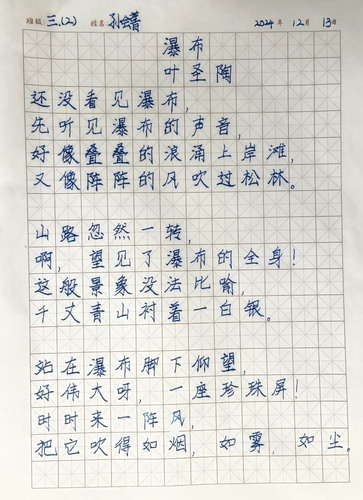 班级 三.(2) 姓名 孙会菁 2024年 12月 13日
瀑布
叶圣陶
还没看见瀑布，
先听见瀑布的声音，
好像叠叠的浪涌上岸滩，
又像阵阵的风吹过松林。
山路忽然一转，
啊，望见了瀑布的全身！
这般景象没法比喻，
千丈青山衬着一白银。
站在瀑布脚下仰望，
好伟大呀，一座珍珠屏！
时时来一阵风，
把它吹得如烟，如雾，如尘。